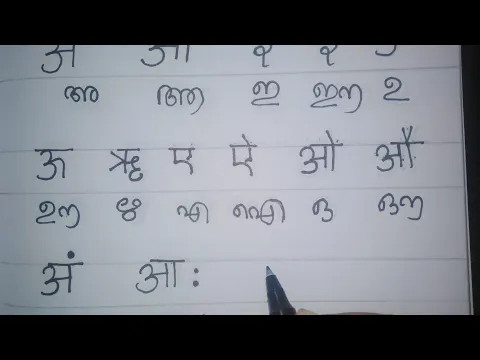 अ आ इ ई उ
അ ആ ഇ ഈ ഉ
ऊ ऋ ए ऐ ओ औ
ഊ ഋ എ ഐ ഒ ഔ
अं आः